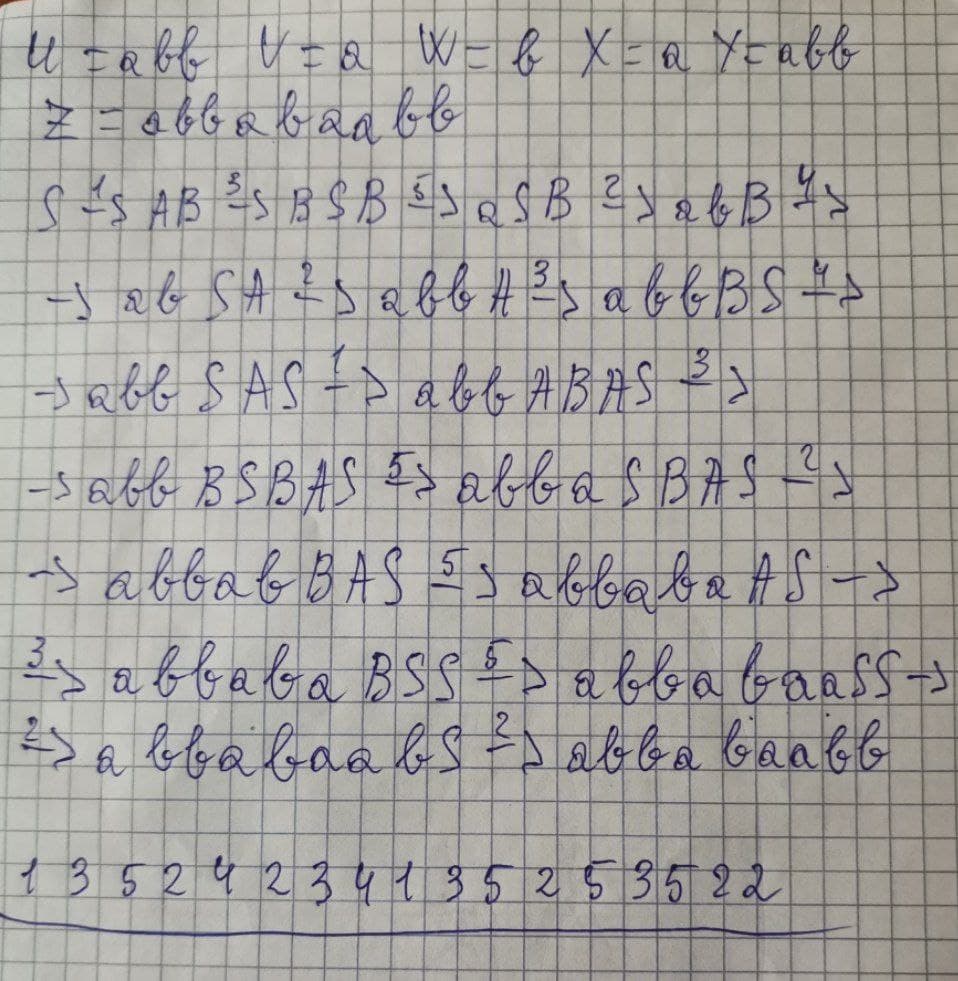 U = abb V = a W = b X = a Y = abb
Z = abbabaabb
S 1→ AB 3→ BSB 5→ aSB 2→ abB 4→
→ abSA 2→ abbA 3→ abbBS 4→
→ abbSAS 1→ abbABAS 3→
→ abbBSBAS 5→ abbaSBAS 2→
→ abbabBAS 5→ abbabaAS →
3→ abbabaBSS 5→ abbabaaSS →
2→ abbabaabS 2→ abbabaabb
1 3 5 2 4 2 3 4 1 3 5 2 5 3 5 2 2